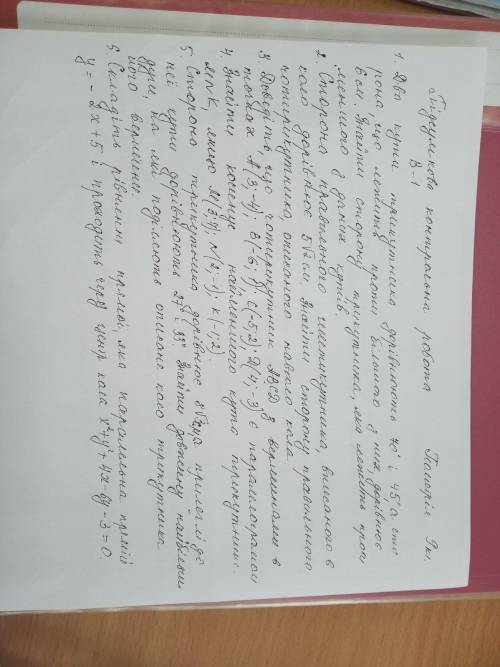 Підсумкова контрольна робота Геометрія 9кл.
В-1
1. Два кути трикутника дорівнюють 70° і 45°, а сто
рона, що лежить проти більшого з них дорівнює
6см. Знайти сторону трикутника, яка лежить проти
меншого з даних кутів.
2. Сторона правильного шестикутника, вписаного в
коло дорівнює 5√2 см. Знайти сторону правильного
чотирикутника, описаного навколо кола.
3. Доведіть, що чотирикутник ABCD з вершинами в
точках A(3;-4); B(-6; 1); C(-5; 2); D(4; -3) є паралелограмом
4. Знайти косинус найменшого кута трикутник.
MNK, якщо M(3; ); N(2; -1); K(-1; 2)
5. Сторона трикутника дорівнює 8√3см, а прилеглі до
неї кути дорівнюють 27° і 33°. Знайти довжину найбільш
дуги, на які поділяють описане коло трикутника
його вершини
6. Складіть рівняння прямої, яка паралельна прямій
y = -2x + 5 і проходить через центр кола x²+y²+4x-6y-3=0.